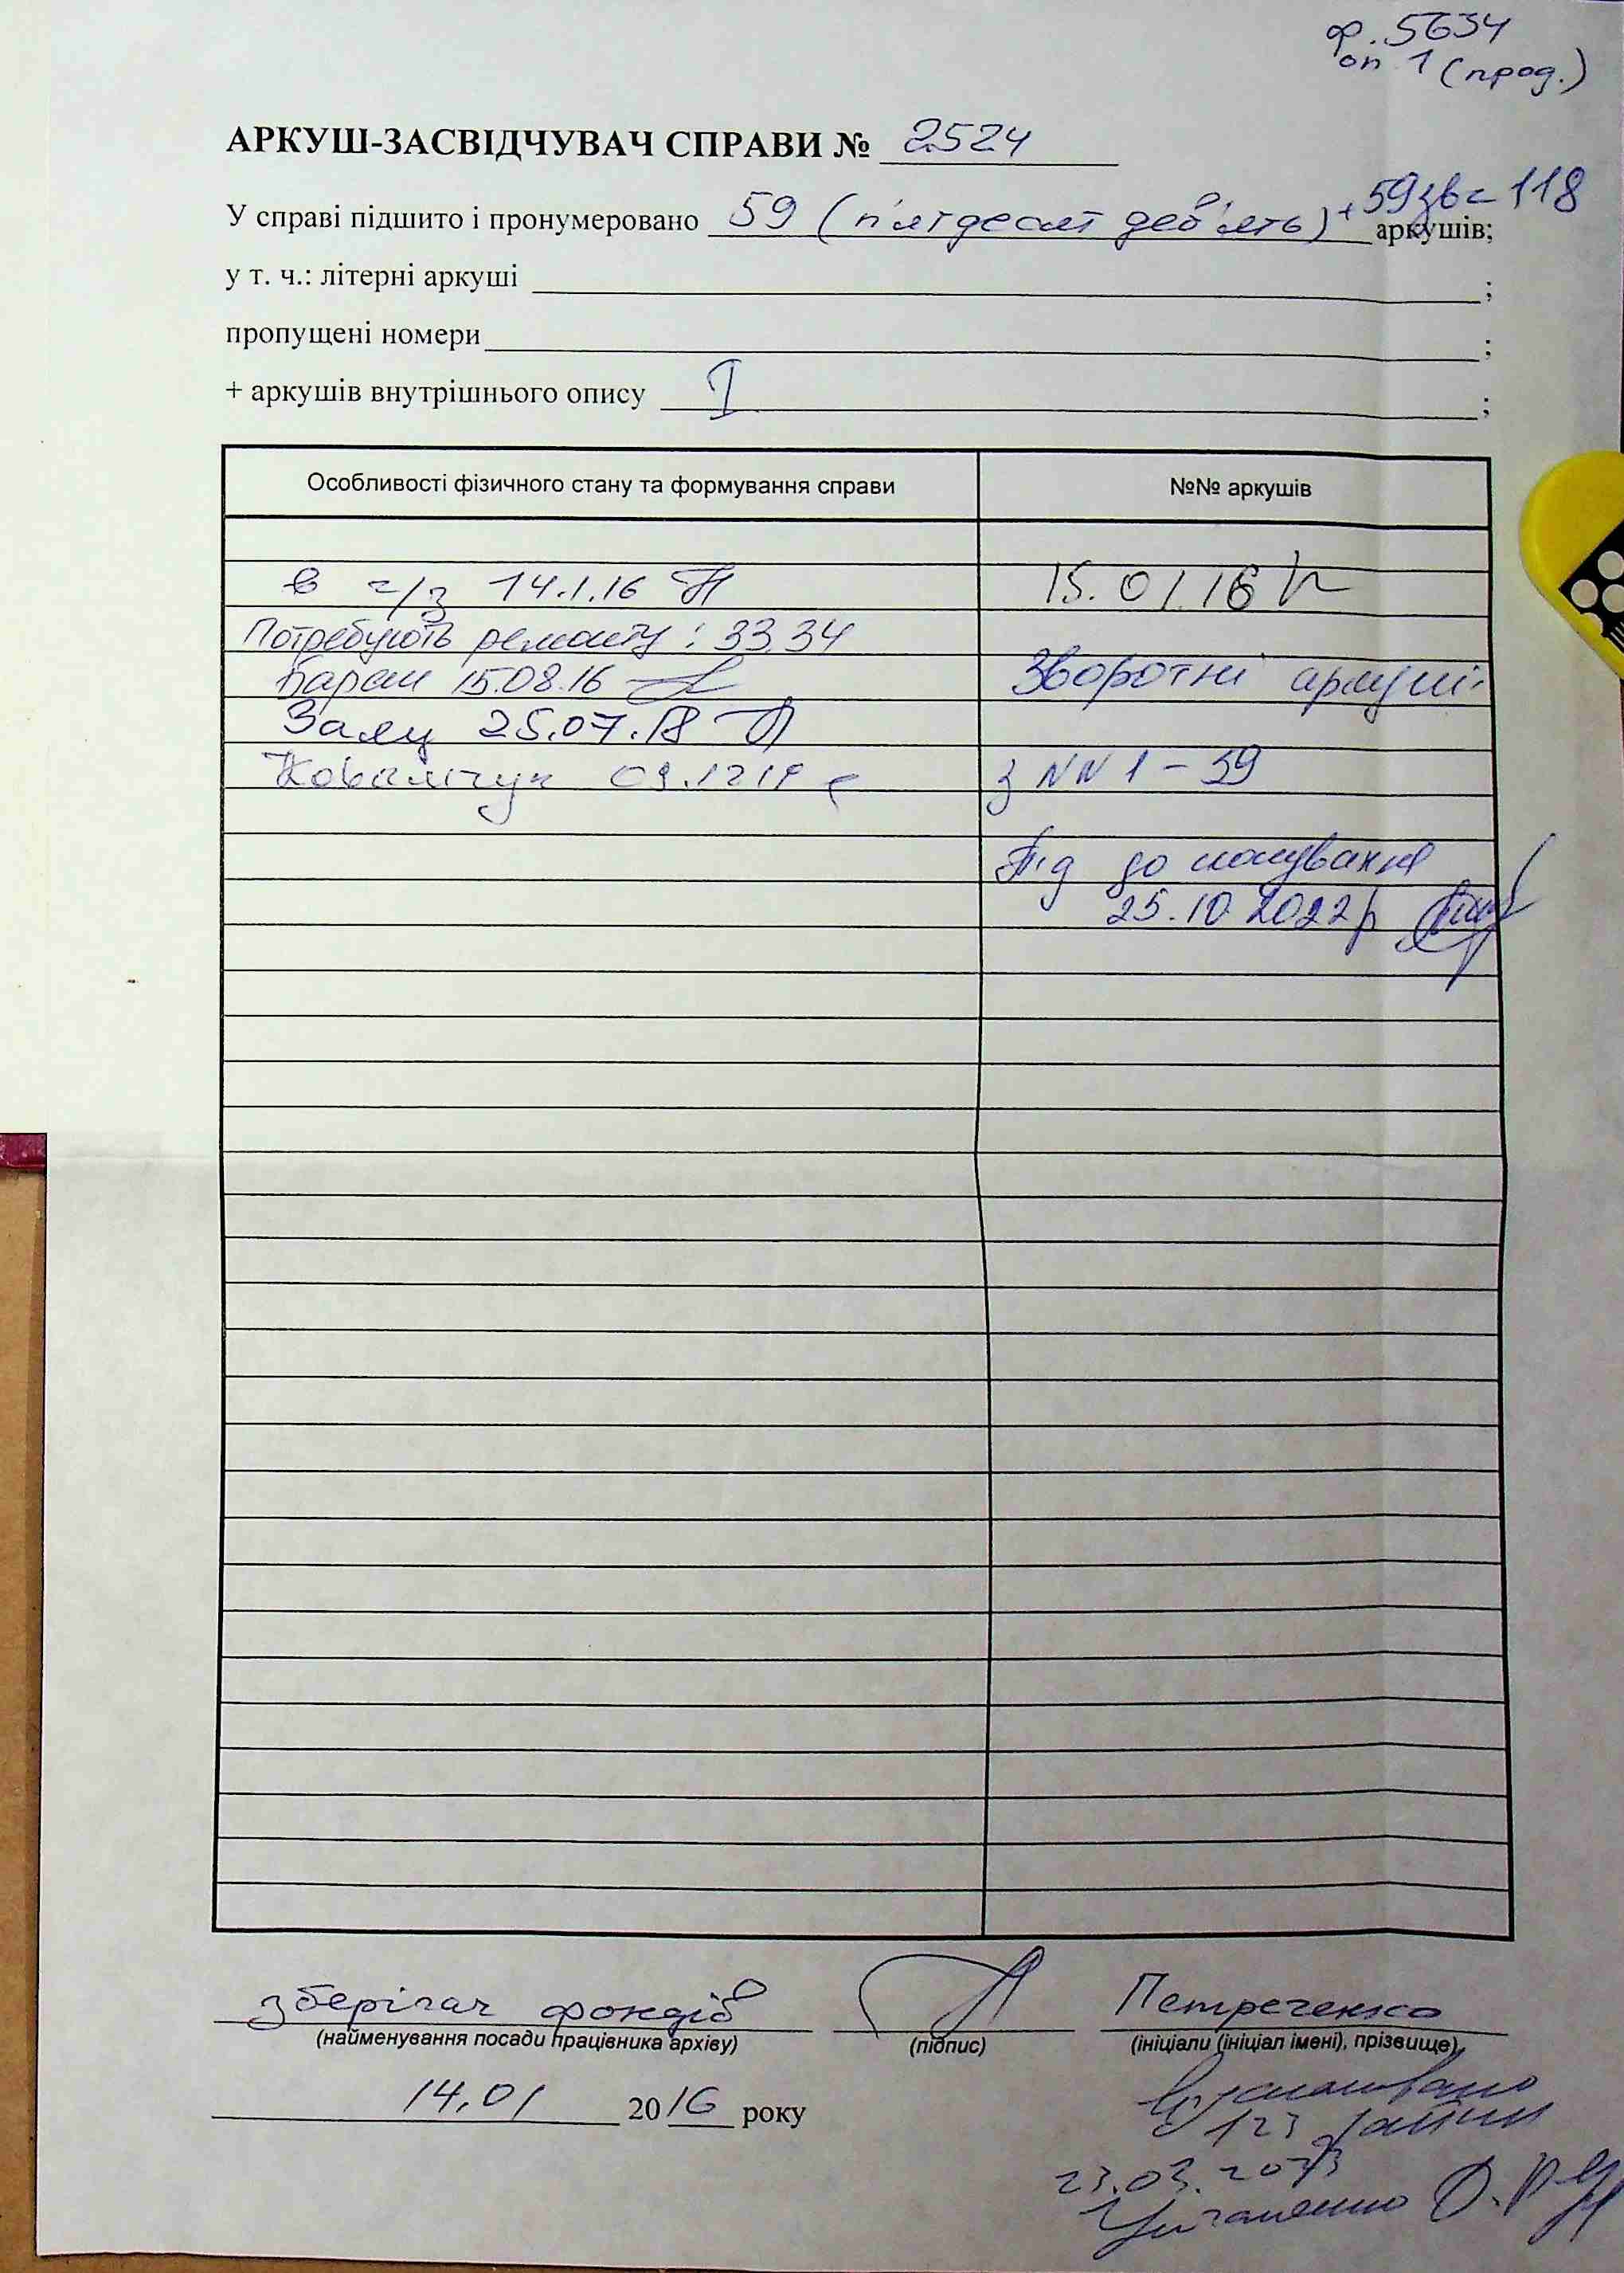 ф. 5634
оп 1 (прод.)
АРКУШ-ЗАСВІДЧУВАЧ СПРАВИ № 2524
У справі підшито і пронумеровано 59 (п'ятдесят дев'ять) + 59зв = 118 аркушів;
у т. ч.: літерні аркуші ;
пропущені номери ;
+ аркушів внутрішнього опису I ;
Особливості фізичного стану та формування справи №№ аркушів
в ч/з 14.1.16 15.01.16
Потребують ремонту: 33, 34
15.08.16 Зворотні аркуші:
Заяц 25.07.18
Ковальчук 09.12 19 з NN 1 - 59
Під до сканування
25.10.2022р
зберігач фондів Петреченко
(найменування посади працівника архіву) (підпис) (ініціали (ініціал імені), прізвище)
14.01 2016 року
Відскановано
123 файли
23.03.2023